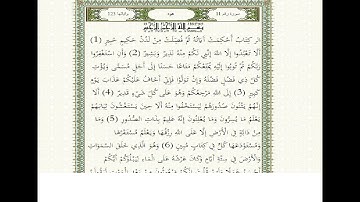 سورة رقم 11 هود آياتها 123
بسم الله الرحمن الرحيم
الر كتاب أحكمت آياته ثم فصلت من لدن حكيم خبير (1)
ألا تعبدوا إلا الله إنني لكم منه نذير وبشير (2) وأن استغفروا
ربكم ثم توبوا إليه يمتعكم متاعا حسنا إلى أجل مسمى ويؤت
كل ذي فضل فضله وإن تولوا فإني أخاف عليكم عذاب يوم
كبير (3) إلى الله مرجعكم وهو على كل شيء قدير (4) ألا
إنهم يثنون صدورهم ليستخفوا منه ألا حين يستغشون ثيابهم
يعلم ما يسرون وما يعلنون إنه عليم بذات الصدور (5) وما
من دابة في الأرض إلا على الله رزقها ويعلم مستقرها
ومستودعها كل في كتاب مبين (6) وهو الذي خلق السماوات
والأرض في ستة أيام وكان عرشه على الماء ليبلوكم أيكم